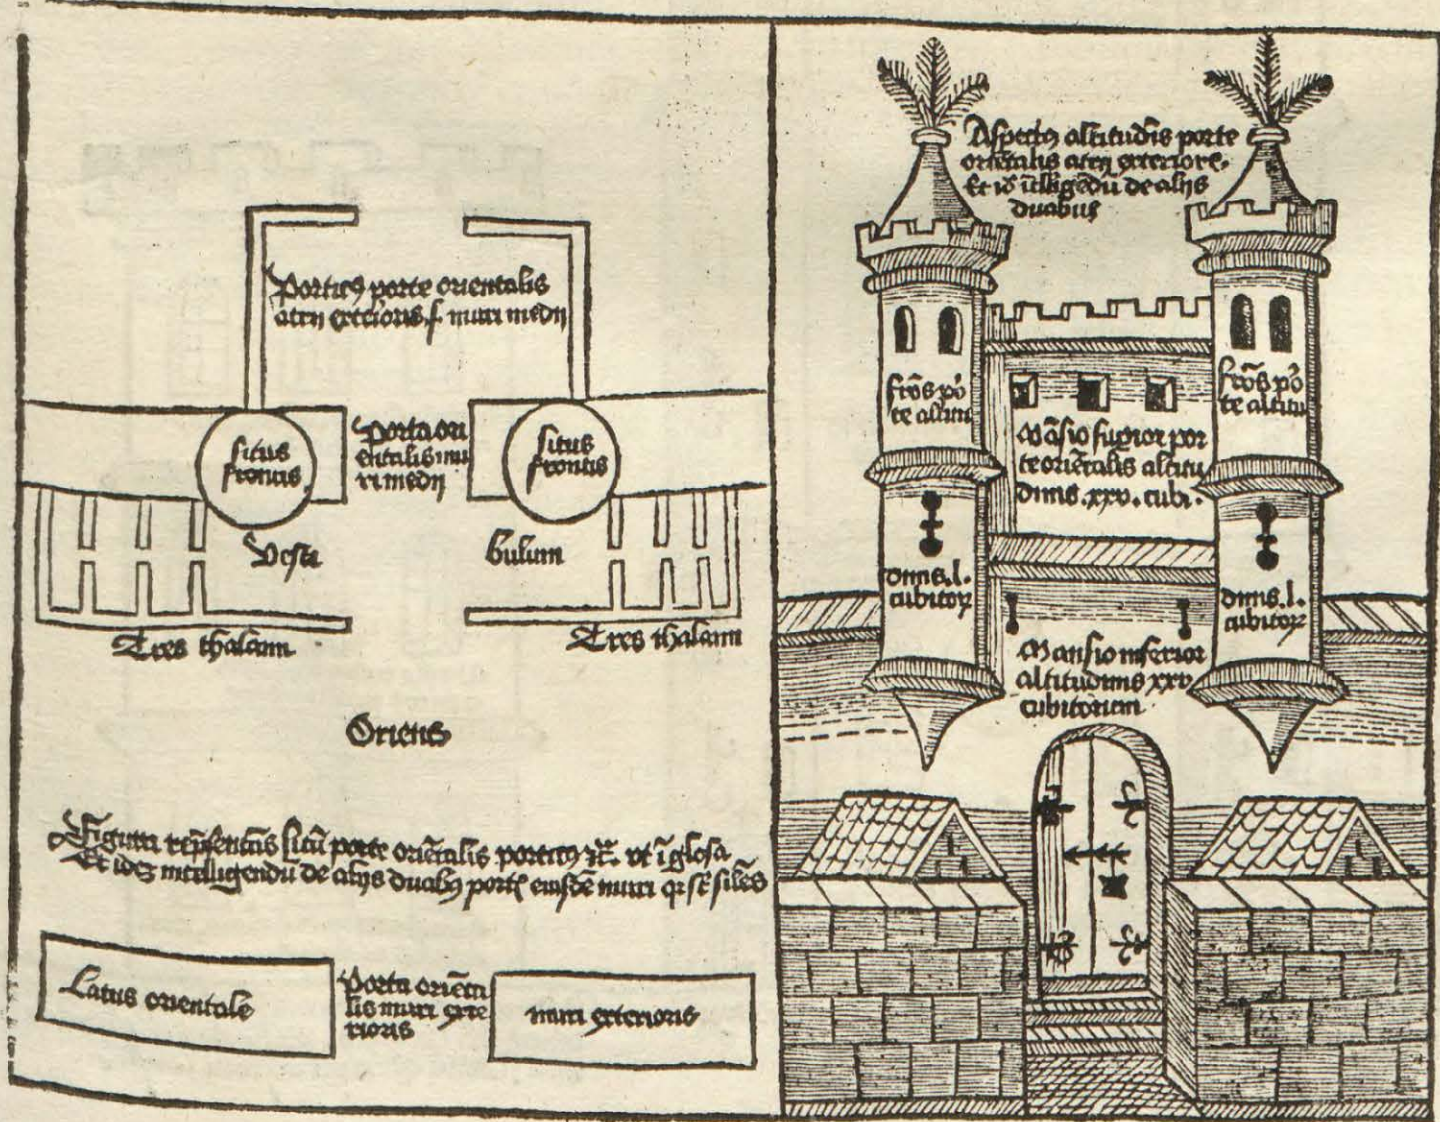 Porticꝰ porte orientalis
atrij exterioris .s. muri medij
Porta ori
entalis mu
ri medij
situs
frontis
situs
frontis
Vesti
bulum
Tres thalami
Tres thalami
Oriens
Figura rep̄sentās sitū porte oriētalis porticꝰ ⁊c̄. vt ī glosa
Et idē intelligendū de alijs duabꝰ port̄ eiusdē muri q̄ sūt sił̄es
Latus orientale
Porta oriēta
lis muri exte
rioris
muri exterioris
Aspectꝰ altitudīs porte
oriētalis atrij exteriore.
Et id̄ ītelligēdū de alijs
duabus
frōs por
te altitu
dinis .l.
cubitoꝝ
Māsio suꝑior por
te oriētalis altitu
dinis .xxv. cubi.
frōs por
te altitu
dinis .l.
cubitoꝝ
Mansio inferior
altitudinis xxv
cubitorum